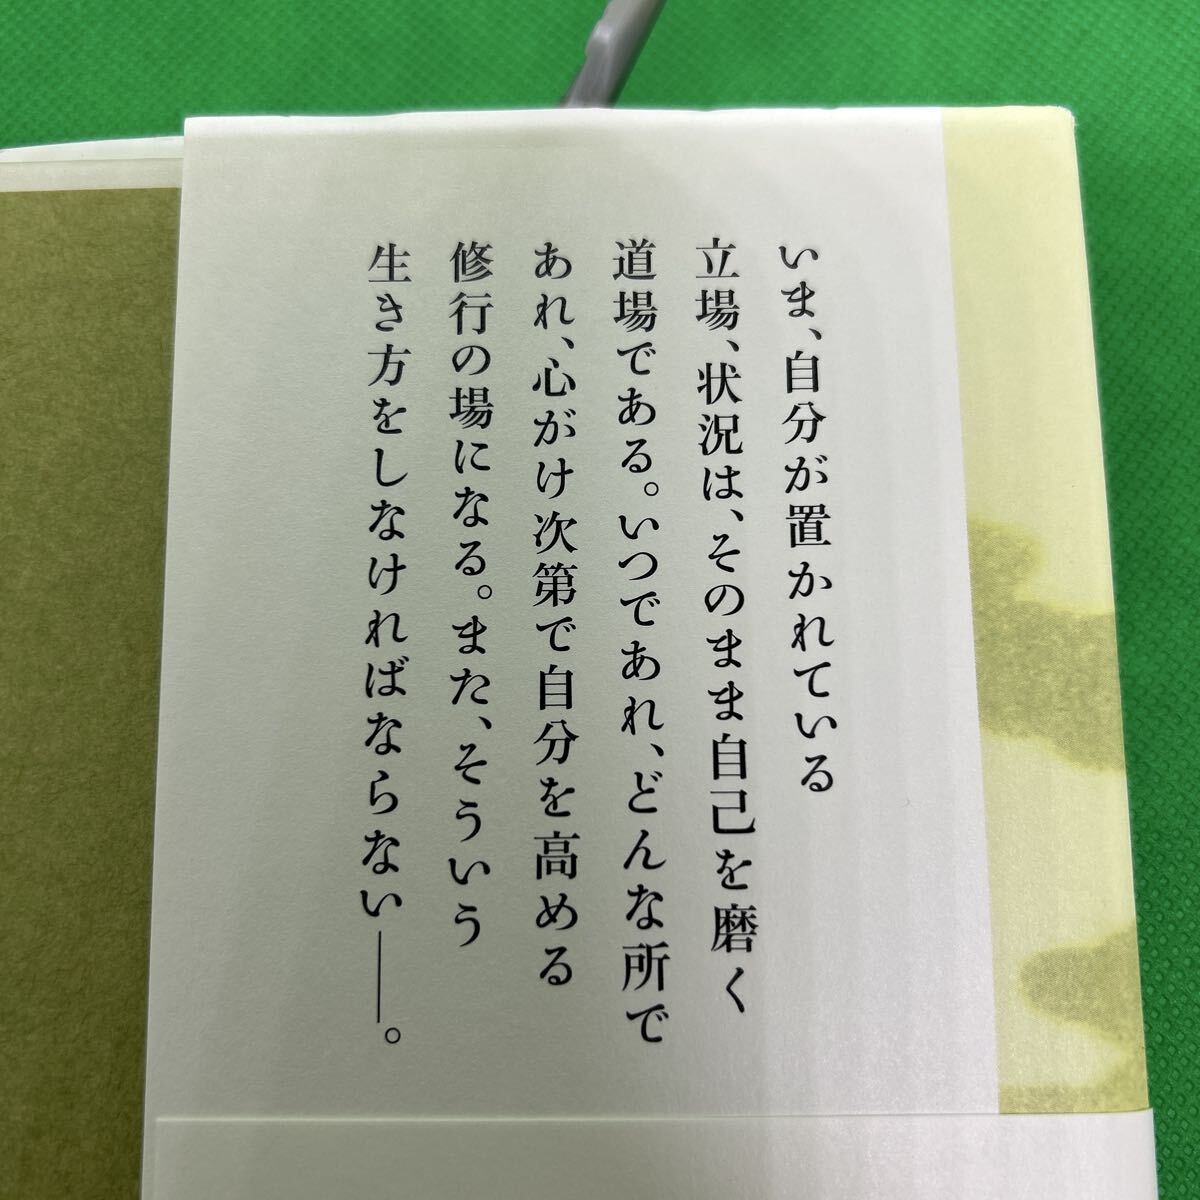 いま、自分が置かれている
立場、状況は、そのまま自己を磨く
道場である。いつであれ、どんな所で
あれ、心がけ次第で自分を高める
修行の場になる。また、そういう
生き方をしなければならない――。